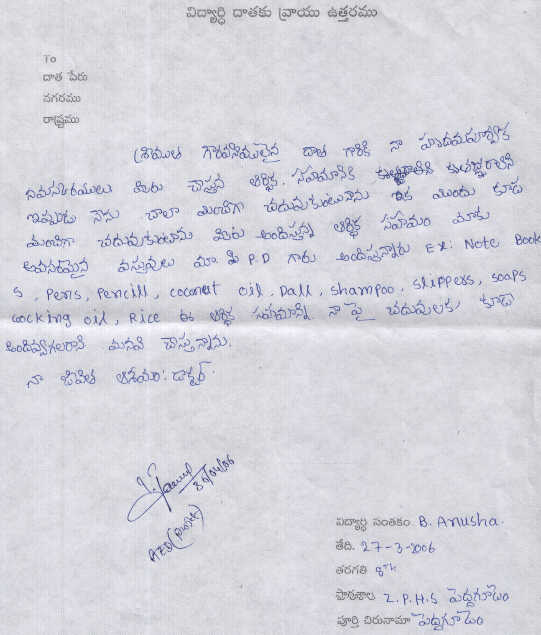 విద్యార్థి దాతకు వ్రాయు ఉత్తరము
To
దాత పేరు
నగరము
రాష్ట్రము
శ్రీయుత గౌరవనీయులైన దాత గారికి నా హృదయపూర్వక
నమస్కారములు మీరు చేస్తున్న ఆర్థిక సహాయానికి కృతజ్ఞురాలిని
ఇప్పుడు నేను చాలా మంచిగా చదువుకుంటున్నాను ఇక ముందు కూడ
మంచిగా చదువుకుంటాను మీరు అందిస్తున్న ఆర్థిక సహాయం మాకు
అవసరమైన వస్తువులు మా పి.P.D గారు అందిస్తున్నారు Ex: Note Book
s, Pens, Pencill, coconut oil, Dall, shampoo, slippers, soaps
cocking oil, Rice ఈ ఆర్థిక సహాయాన్ని నా పై చదువులకు కూడా
అందివ్వగలరని మనవి చేస్తున్నాను.
నా జీవిత ఆశయం: డాక్టర్.
విద్యార్థి సంతకం B. Anusha.
తేది. 27-3-2006
తరగతి 8th
పాఠశాల Z.P.H.S పెద్దగూడెం
పూర్తి చిరునామా పెద్దగూడెం